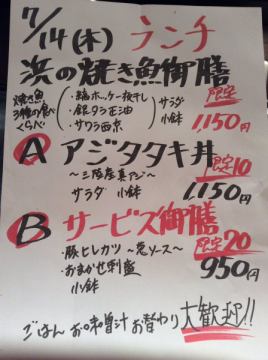 7/14(木) ランチ
浜の焼き魚御膳
焼き魚3種の食べくらべ
・縞ホッケ一夜干し
・銀ダラ正油
・サワラ西京
サラダ
小鉢
限定
1,150円
A アジタタキ丼
〜三陸産真アジ〜
限定10
サラダ 小鉢
1,150円
B サービス御膳
限定20
・豚ヒレカツ 〜ソース〜
950円
・おまかせ刺盛
小鉢
ごはん お味噌汁 お替わり 大歓迎!!